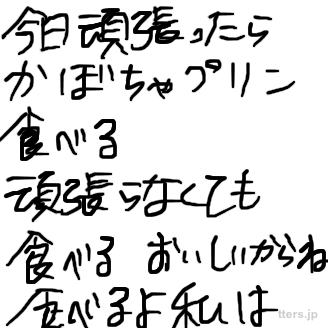 今日頑張ったら
かぼちゃプリン
食べる
頑張らなくても
食べる おいしいからね
食べるよ私は
tters.jp